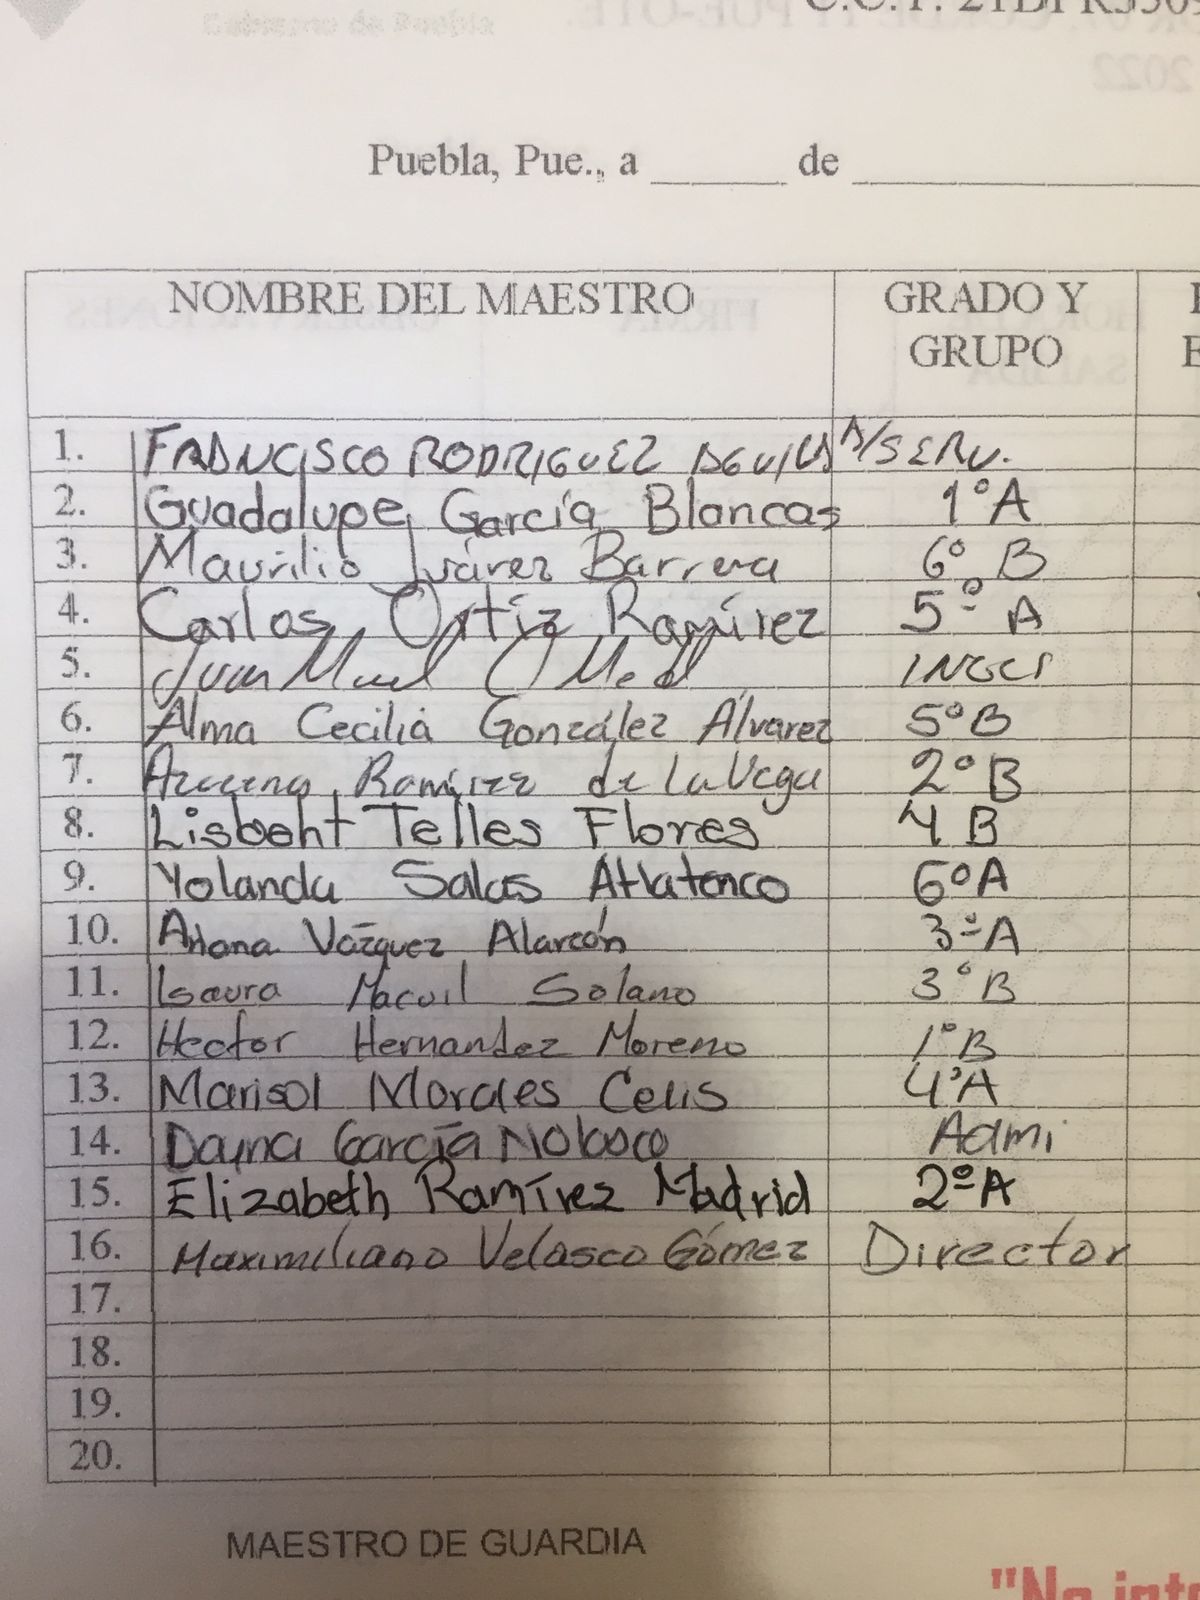 Gobierno de Puebla
2022
Puebla, Pue., a ______ de ______
NOMBRE DEL MAESTRO GRADO Y GRUPO
1. FRANCISCO RODRIGUEZ AGUILA A/SERV.
2. Guadalupe García Blancas 1°A
3. Maurilio Juárez Barrera 6° B
4. Carlos Ortiz Ramírez 5° A
5. Juan
6. Alma Cecilia González Álvarez 5°B
7. Azucena Ramírez de la Vega 2°B
8. Lisbeht Telles Flores 4 B
9. Yolanda Salas Atlatenco 6°A
10. Vázquez Alarcón 3°A
11. Isaura Macuil Solano 3°B
12. Hector Hernandez Moreno 1°B
13. Marisol Morales Celis 4°A
14. García Nolasco Admi
15. Elizabeth Ramírez Madrid 2°A
16. Maximiliano Velasco Gómez Director
17.
18.
19.
20.
MAESTRO DE GUARDIA
"No